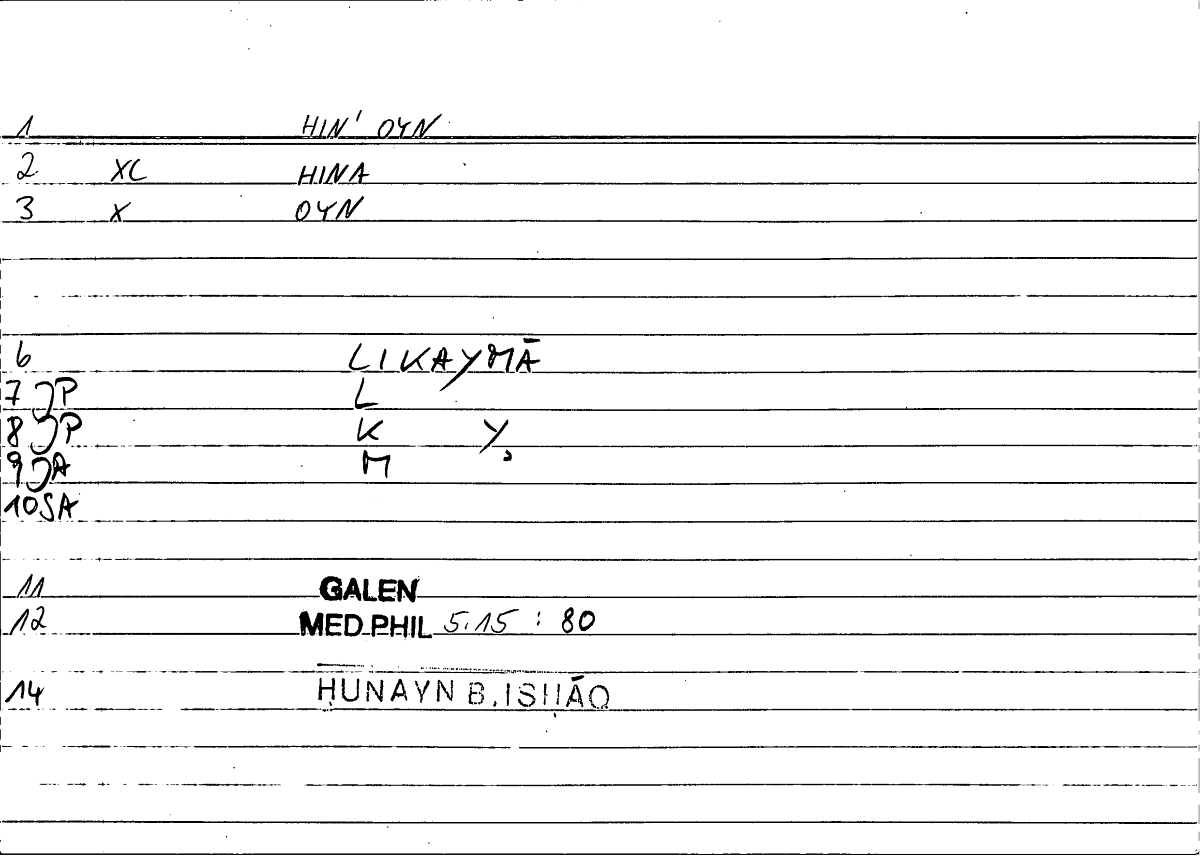 1 HIN' OYN
2 XC HINA
3 X OYN
6 LIKAYMĀ
7 JP L
8 JP K Y,
9 JA M
10 SA
11 GALEN
12 MED PHIL 5.15 : 80
14 ḤUNAYN B. ISḤĀQ